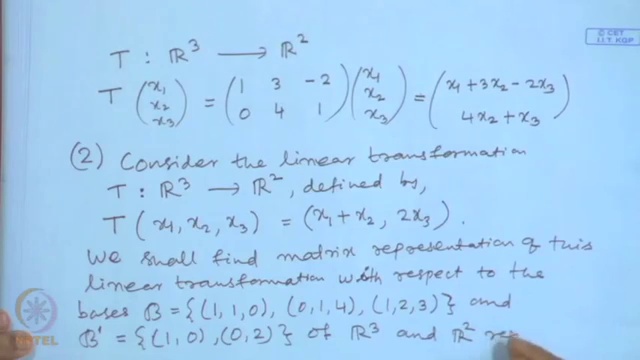 T : ℝ³ ⟶ ℝ²
© CET
I.I.T. KGP
T (x₁ x₂ x₃) = (1 3 -2 0 4 1) (x₁ x₂ x₃) = (x₁ + 3x₂ - 2x₃ 4x₂ + x₃)
(2) Consider the linear transformation
T : ℝ³ ⟶ ℝ², defined by,
T (x₁, x₂, x₃) = (x₁ + x₂, 2x₃).
We shall find matrix representation of this
linear transformation with respect to the
bases B = {(1, 1, 0), (0, 1, 4), (1, 2, 3)} and
B' = {(1, 0), (0, 2)} of ℝ³ and ℝ² res
NPTEL